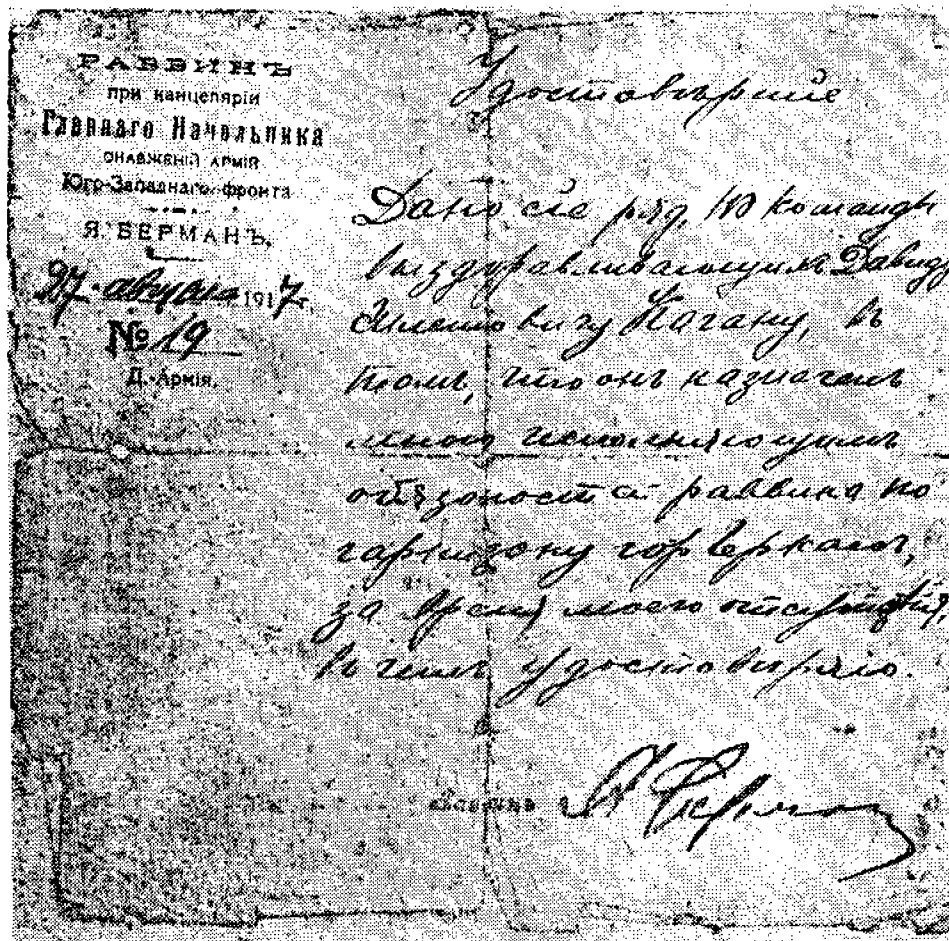 РАВВИНЪ
при канцеляріи
Главнаго Начальника
снабженій армій
Юго-Западнаго фронта
Я. БЕРМАНЪ.
27 августа 1917 г.
№ 19
Д. Армія.
Удостовѣреніе
Дано сіе ряд. 10 команды
выздоравливающихъ Давиду
Когану, въ
томъ, что онъ назначенъ
мною исполняющимъ
обязаности раввина по
гарнизону гор. Черкасы,
за время моего отсутствія,
въ чемъ удостовѣряю.
Раввинъ Я Берман